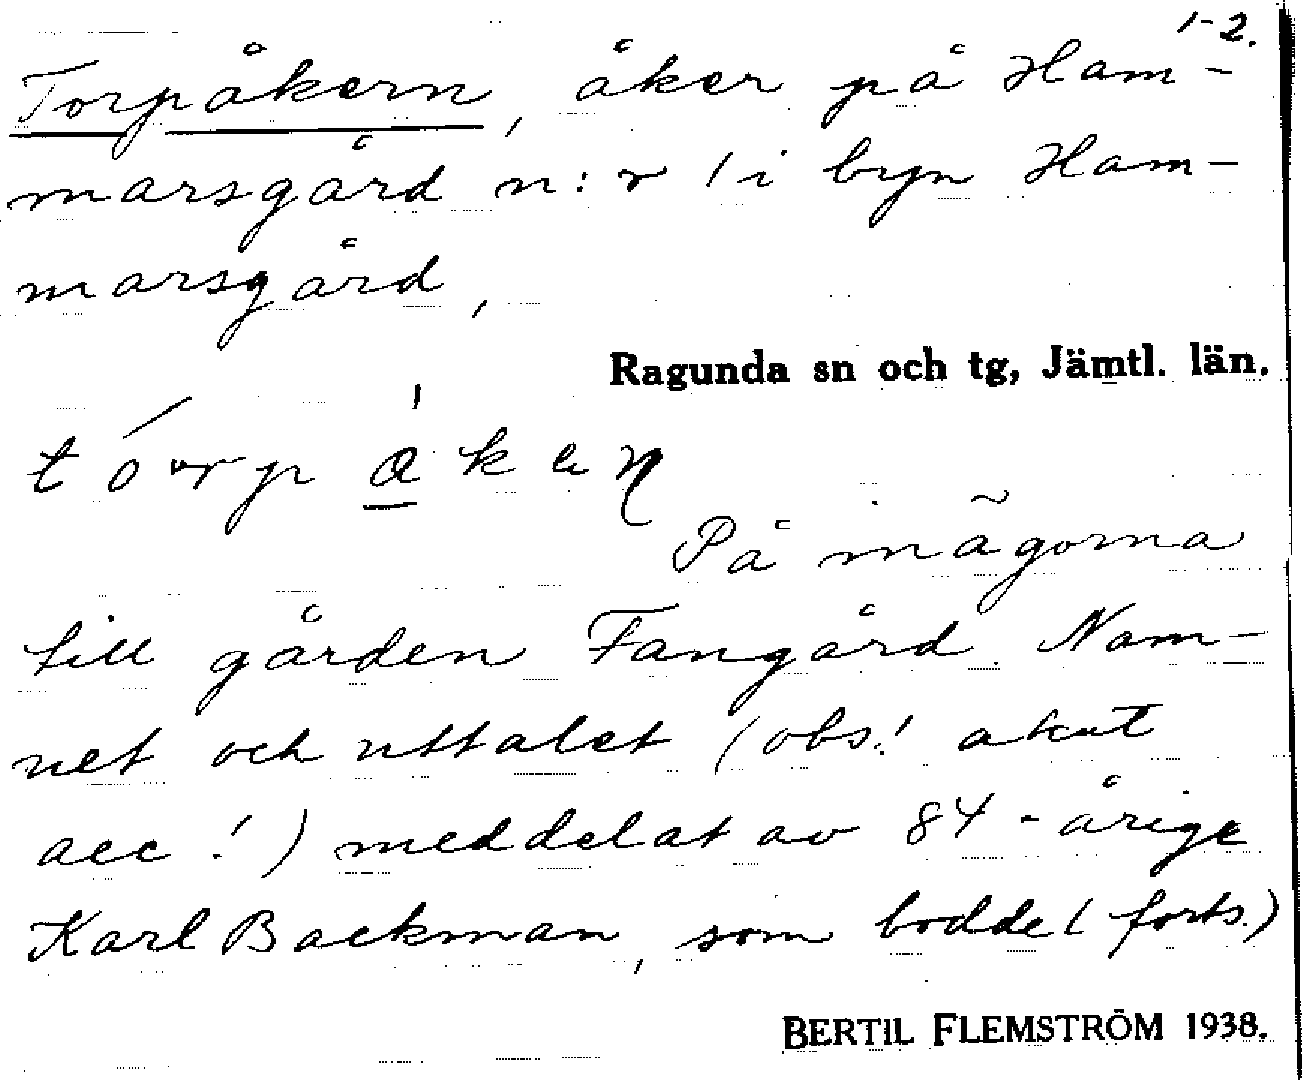 1-2.
Torpåkern, åker på Ham-
marsgård n:r 1 i byn Ham-
marsgård,
Ragunda sn och tg, Jämtl. län.
På inägorna
till gården Fangård. Nam-
net och uttalet (obs.! akut
acc!) meddelat av 84-årige
Karl Backman, som bodde (forts.)
BERTIL FLEMSTRÖM 1938.